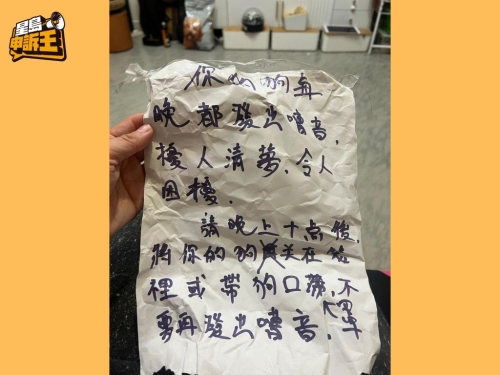 星島
申訴王
你的狗每
晚都發出嘈音,
擾人清夢,令人
困擾.
請晚上十点後,
將你的狗关在笼
裡或帶狗口帶,不
罩
要再發出嘈音.